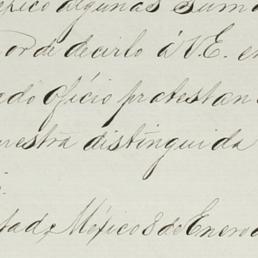 éxico algunas suma
or de decirlo á V.E. en
ado oficio protestan
uestra distinguida
tad, México 8 de Enero d